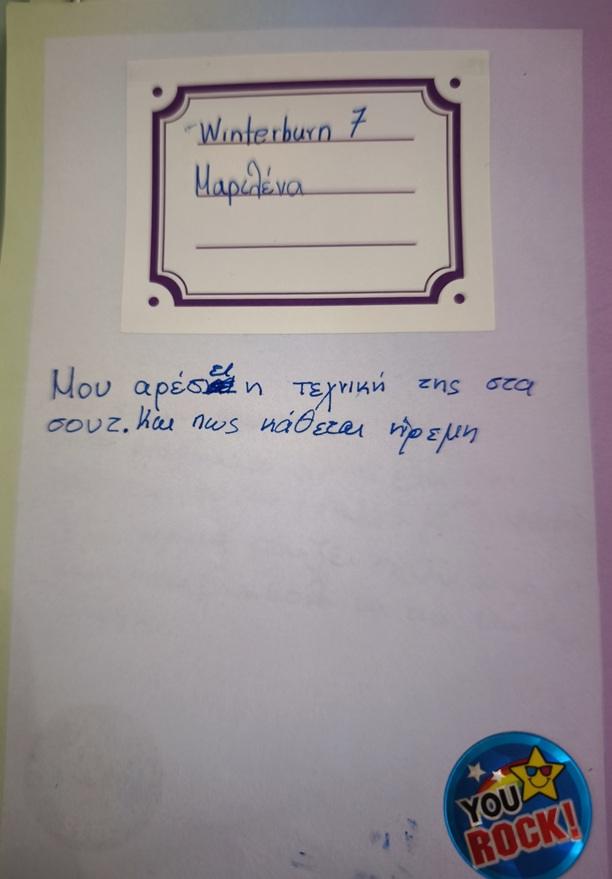 Winterburn 7
Μαριλένα
Μου αρέσει η τεχνική της στα
σουτ. Και πως κάθεται ήρεμη
YOU
ROCK!